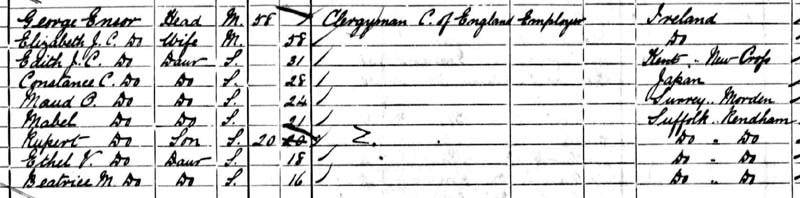 George Ensor Head M. 58 Clergyman C. of England Employer Ireland
Elizabeth J. C. Do Wife M. 58 Do
Edith J. C. Do Daur S. 31 Kent .. New Cross
Constance C. Do Do S. 28 Japan
Maud O. Do Do S. 24 Surrey .. Morden
Mabel Do Do S. 21 Suffolk .. Rendham
Rupert Do Son S. 20 Do " Do
Ethel V. Do Daur S. 18 Do " Do
Beatrice M. Do Do S. 16 Do " Do